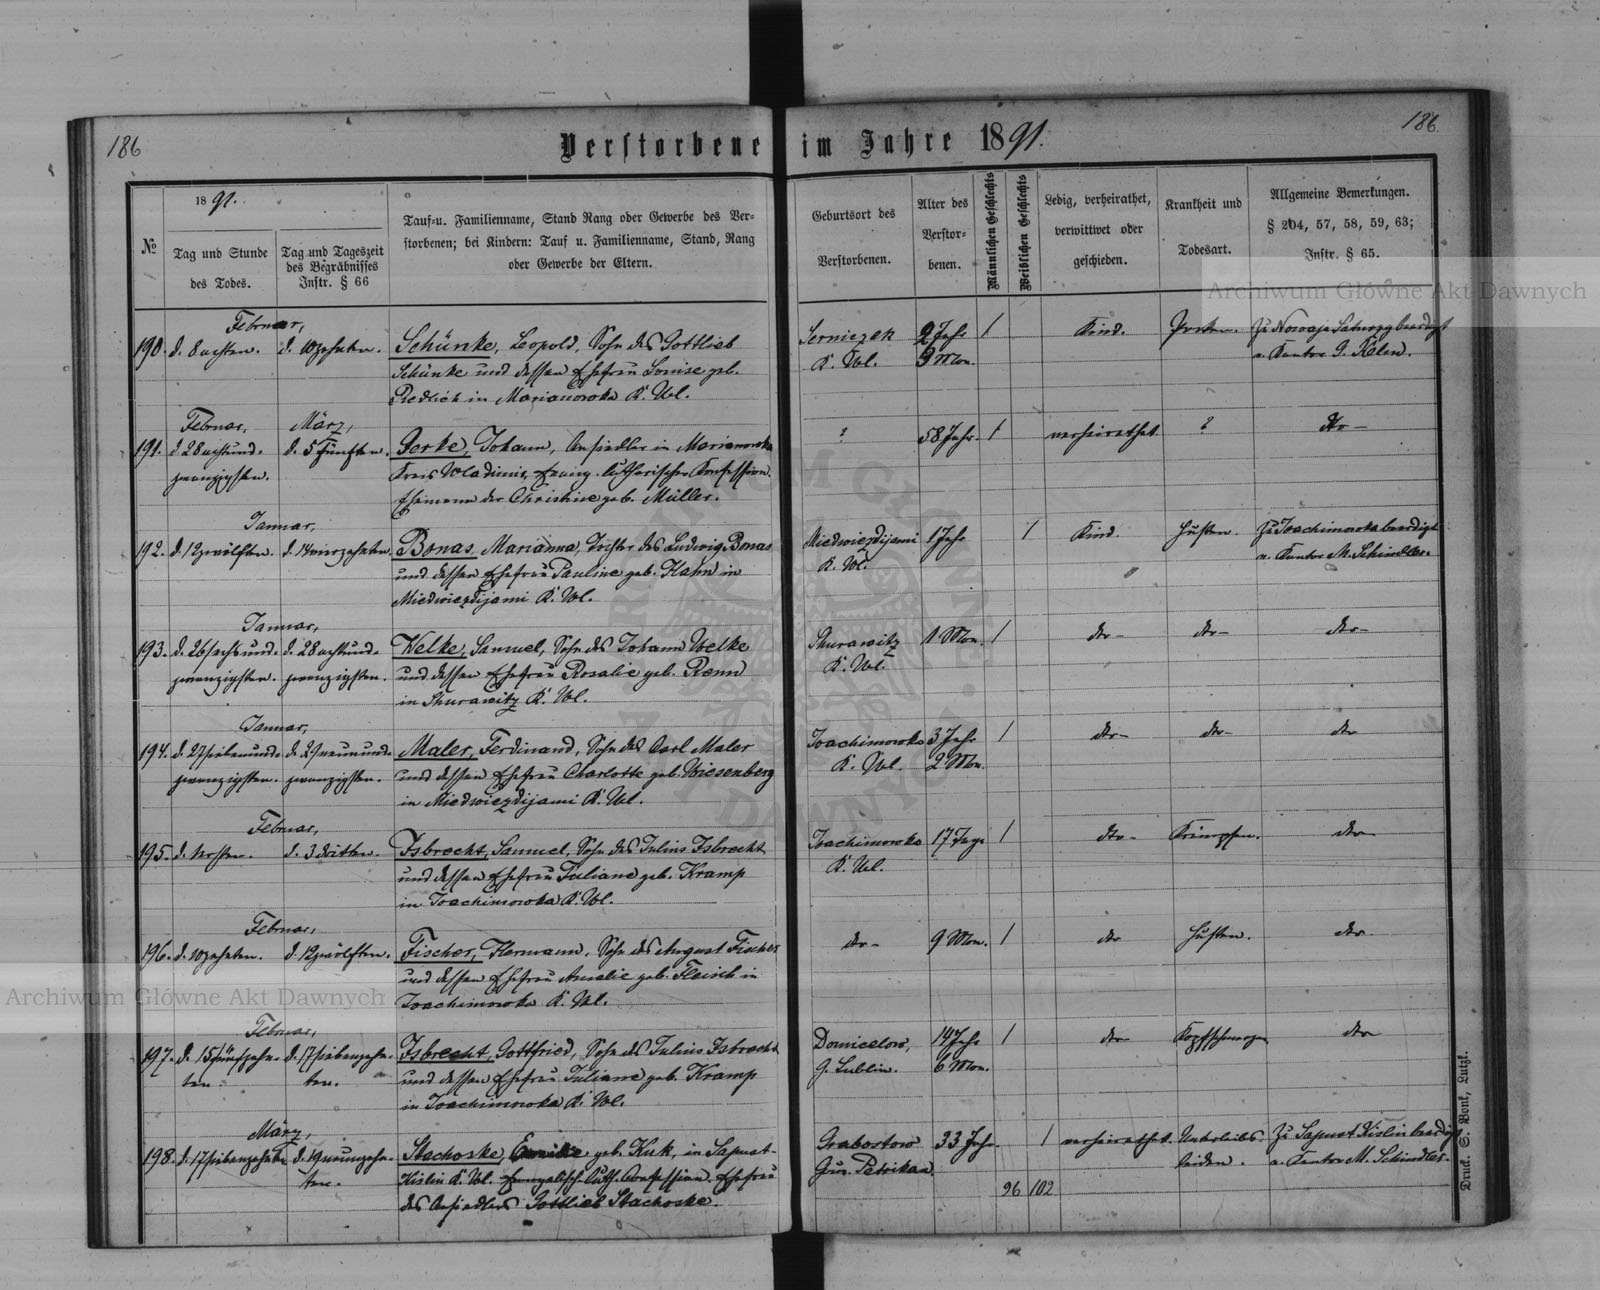 186
Verstorbene im Jahre 1891.
186.
1891.
№
Tag und Stunde
des Todes.
Tag und Tageszeit
des Begräbnisses
Instr. § 66
Tauf- u. Familienname, Stand Rang oder Gewerbe des Ver-
storbenen; bei Kindern: Tauf u. Familienname, Stand, Rang
oder Gewerbe der Eltern.
Geburtsort des
Verstorbenen.
Alter des
Verstor-
benen.
Männlichen Geschlechts
Weiblichen Geschlechts
Ledig, verheirathet,
verwittwet oder
geschieden.
Krankheit und
Todesart.
Allgemeine Bemerkungen.
§ 204, 57, 58, 59, 63;
Instr. § 65.
Archiwum Główne Akt Dawnych
Februar,
190. d. 8 achten. d. 10 zehnten.
Schünke, Leopold, Sohn des Gottlieb
Schünke und dessen Ehefrau Louise geb.
Redlich in Marianowka K. Wl.
Serniczek
K. Wl.
2 Jahr
9 Mon.
1
Kind.
Husten.
beerdigt
v. Kantor G. Kelm.
Februar, März,
191. d. 28 achtund- d. 5 fünften.
zwanzigsten.
Gerke, Johann, Ansiedler in Marianowka
Kreis Wladimir, evang.-lutherischer Confession.
Ehemann der Christine geb. Müller.
?
58 Jahr
1
verheirathet
?
dto-
Januar,
192. d. 12 zwölften. d. 14 vierzehnten.
Bonas, Marianna, Tochter des Ludwig Bonas
und dessen Ehefrau Pauline geb. Hahn in
Miedwiezdijami K. Wl.
Miedwiezdijami
K. Wl.
1 Jahr
1
Kind.
Husten.
Zu Joachimowka beerdigt
v. Kantor M. Schindler.
Januar,
193. d. 26 sechsund- d. 28 achtund-
zwanzigsten. zwanzigsten.
Welke, Samuel, Sohn des Johann Welke
und dessen Ehefrau Rosalie geb. Renn
in Shurawitz K. Wl.
Shurawitz
K. Wl.
1 Mon.
1
dto-
dto-
dto-
Januar,
194. d. 27 siebenund- d. 29 neunund-
zwanzigsten. zwanzigsten.
Maler, Ferdinand, Sohn des Carl Maler
und dessen Ehefrau Charlotte geb. Wiesenberg
in Miedwiezdijami K. Wl.
Joachimowka
K. Wl.
3 Jahr
2 Mon.
1
dto-
dto-
dto
Februar,
195. d. 1 ersten. d. 3 dritten.
Isbrecht, Samuel, Sohn des Julius Isbrecht
und dessen Ehefrau Juliane geb. Kramp
in Joachimowka K. Wl.
Joachimowka
K. Wl.
17 Tage
1
dto-
Krämpfen.
dto
Februar,
196. d. 10 zehnten. d. 12 zwölften.
Fischer, Hermann, Sohn des August Fischer
und dessen Ehefrau Amalie geb. Fleisch in
Joachimowka K. Wl.
dto-
9 Mon.
1
dto
Husten.
dto
Februar,
197. d. 15 fünfzehn- d. 17 siebenzehn-
ten. ten.
Isbrecht, Gottfried, Sohn des Julius Isbrecht
und dessen Ehefrau Juliane geb. Kramp
in Joachimowka K. Wl.
Domicelow,
G. Lublin.
14 Jahr
6 Mon.
1
dto
Kopfschmerzen
dto
März,
198. d. 17 siebenzehnten d. 19 neunzehn-
ten.
Stachoske, geb. Kuk, in Sapust-
Kislin K. Wl. evangelisch-luth. Confession. Ehefrau
des Ansiedlers Gottlieb Stachoske.
Grabostow
Guv. Petrikau
33 Jahr
1
verheirathet.
Unterleibs-
leiden.
Zu Sapust Kislin beerdigt
v. Kantor M. Schindler.
96 102
Druck. S. Bonk, Lutzk.
Archiwum Główne Akt Dawnych